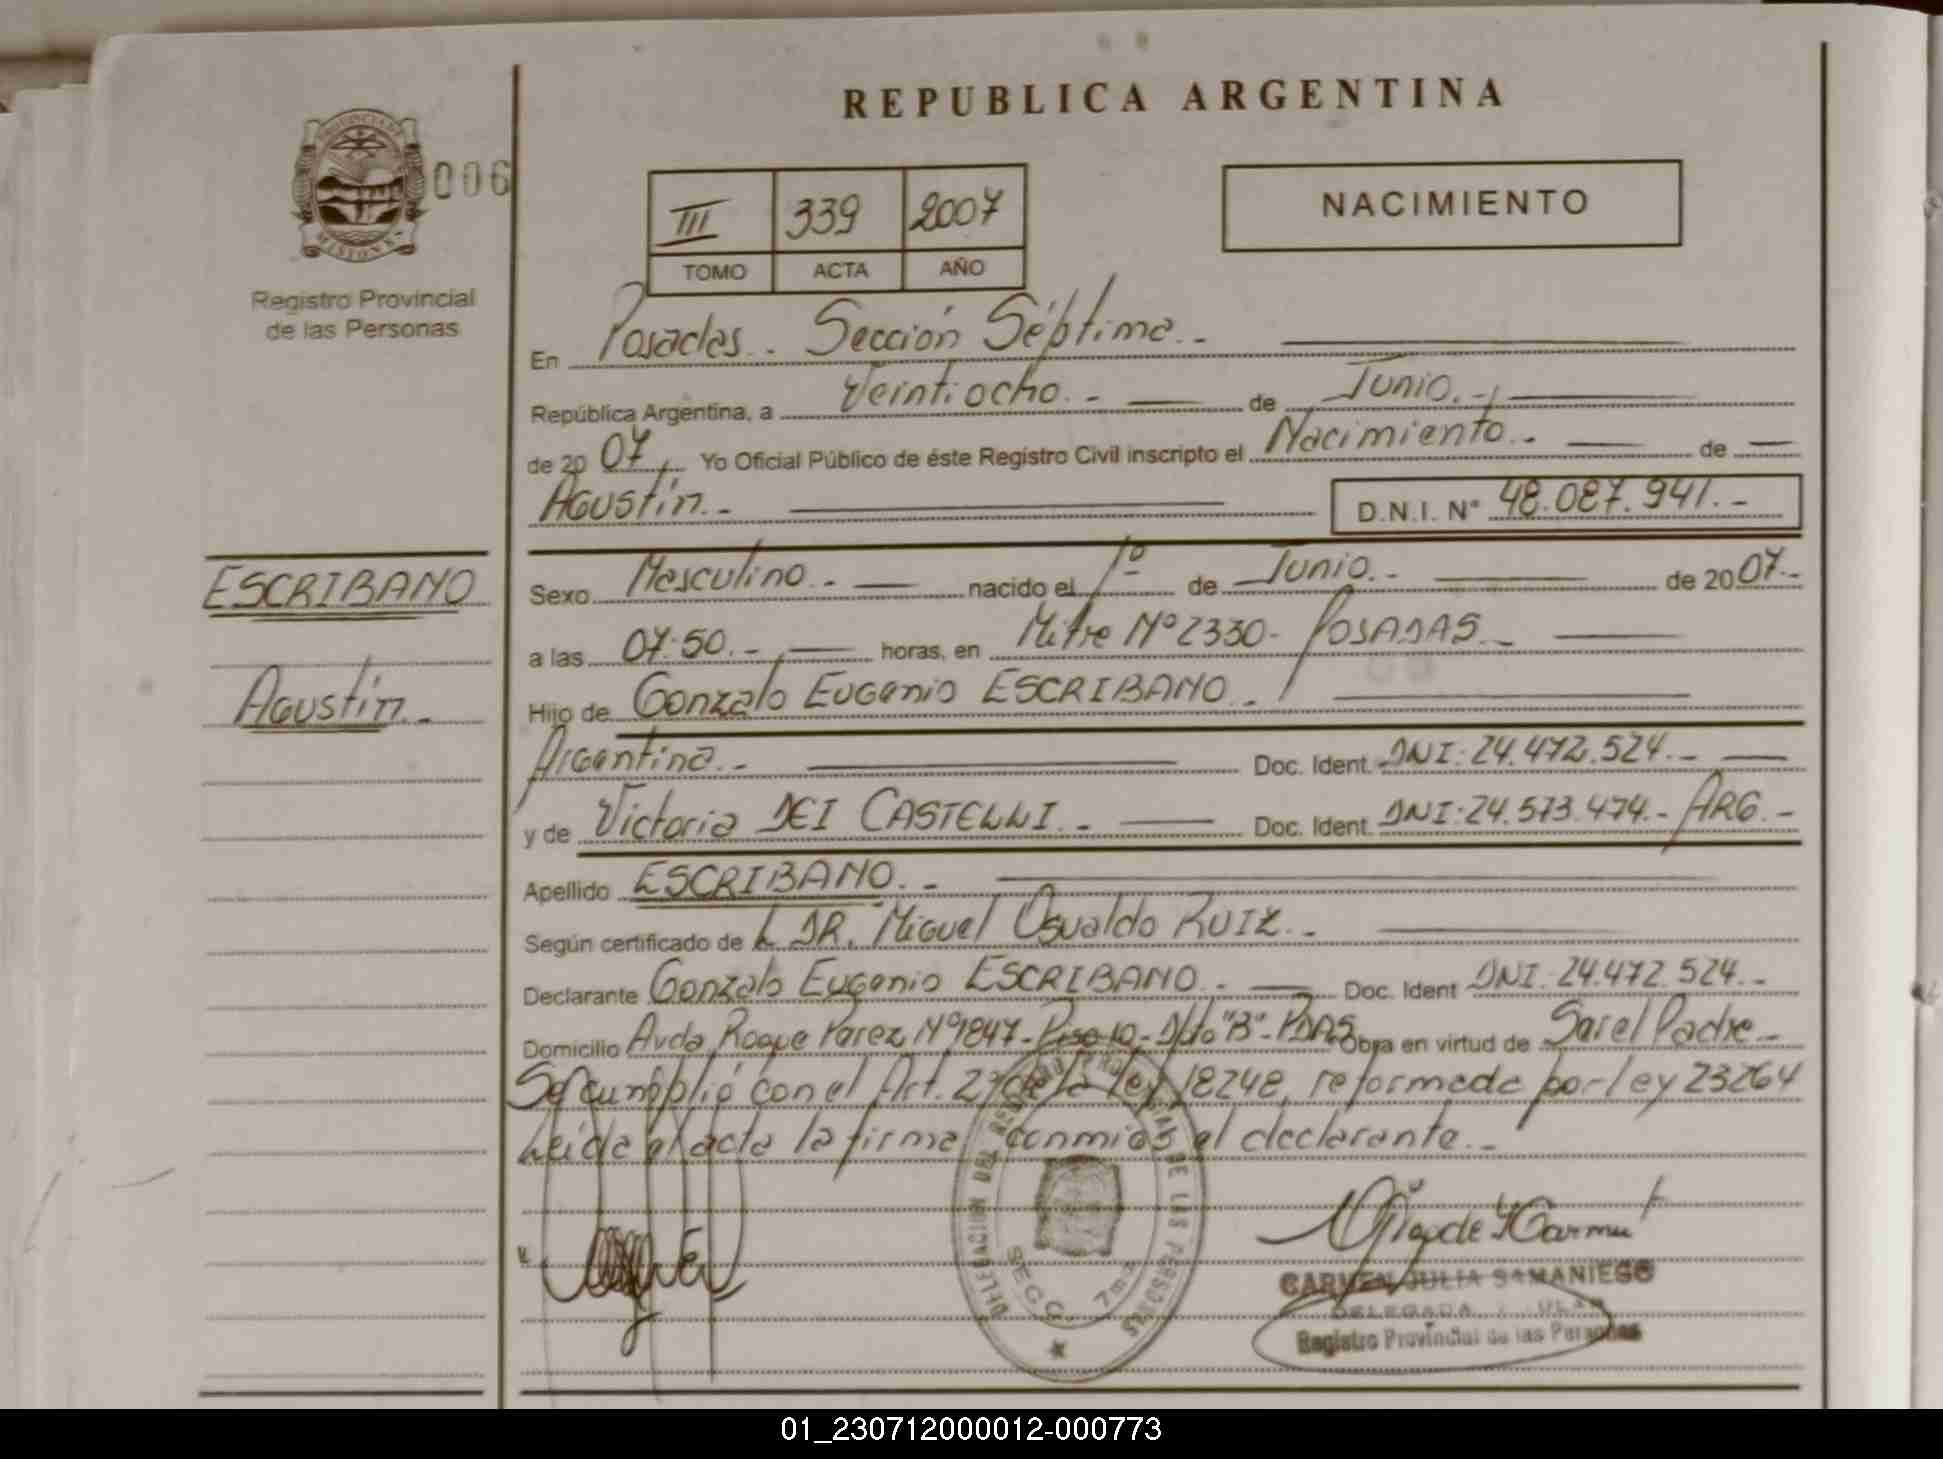 REPUBLICA ARGENTINA
PROVINCIA DE
MISIONES
006
Registro Provincial
de las Personas
III 339 2007
TOMO ACTA AÑO
NACIMIENTO
En Posadas. Sección Séptima.-
República Argentina, a Veintiocho.- de Junio.-
de 2007, Yo Oficial Público de éste Registro Civil inscripto el Nacimiento.- de
Agustín.- D.N.I. N° 48.087.941.-
ESCRIBANO
Agustín.-
Sexo Masculino.- nacido el 1º de Junio.- de 2007.-
a las 07:50.- horas, en Mitre Nº 2330- POSADAS.-
Hijo de Gonzalo Eugenio ESCRIBANO.-
Argentina.- Doc. Ident. DNI: 24.472.524.-
y de Victoria DEI CASTELLI.- Doc. Ident. DNI: 24.573.474.- ARG.-
Apellido ESCRIBANO.-
Según certificado de L DR. Miguel Osvaldo RUIZ.-
Declarante Gonzalo Eugenio ESCRIBANO.- Doc. Ident DNI: 24.472.524.-
Domicilio Avda Roque Perez Nº 1847- Piso 10- Dpto "B"- PDAS Obra en virtud de Ser el Padre-
Se cumplió con el Art. 2º de la Ley 18248, reformada por ley 23264
Leída el acta la firma conmigo el declarante.-
DELEGACION DEL REGISTRO PROVINCIAL DE LAS PERSONAS
SECC. 7ma
CARMEN JULIA SAMANIEGO
DELEGADA
Registro Provincial de las Personas
01_230712000012-000773